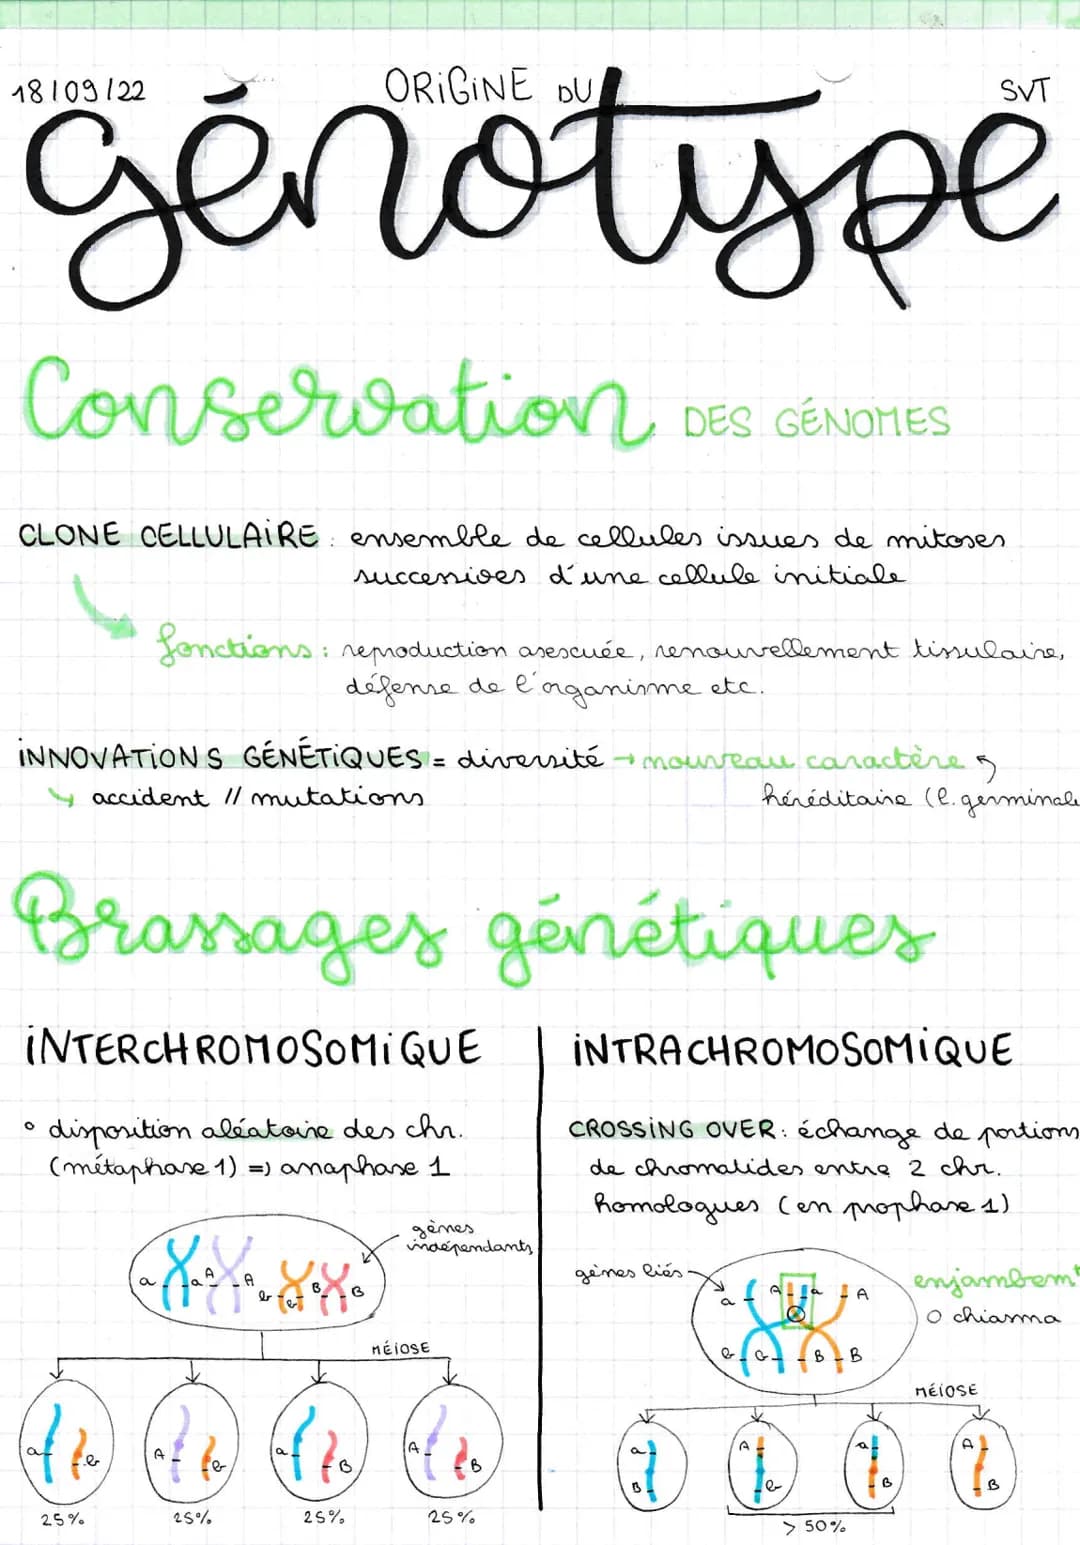 18/09/22
ORIGINE DU
SVT
génotype
Conservation DES GÉNOMES
CLONE CELLULAIRE : ensemble de cellules issues de mitoses
successives d'une cellule initiale
fonctions : reproduction asescuée, renouvellement tissulaire,
défense de l'organisme etc.
INNOVATIONS GÉNÉTIQUES = diversité → nouveau caractère
↳ accident // mutations
héréditaire (C. germinale
Brassages génétiques
INTERCHROMOSOMIQUE
° disposition aléatoire des chr.
(métaphase 1) => anaphase 1
gènes
indépendants
a a A A b b B B
MÉIOSE
a b
A b
a B
A B
25%
25%
25%
25%
INTRACHROMOSOMIQUE
CROSSING OVER : échange de portions
de chromatides entre 2 chr.
homologues (en prophase 1)
gènes liés
enjambemt
O chiasma
a A a A
b b B B
MÉIOSE
a B
A b
a B
A B
> 50%